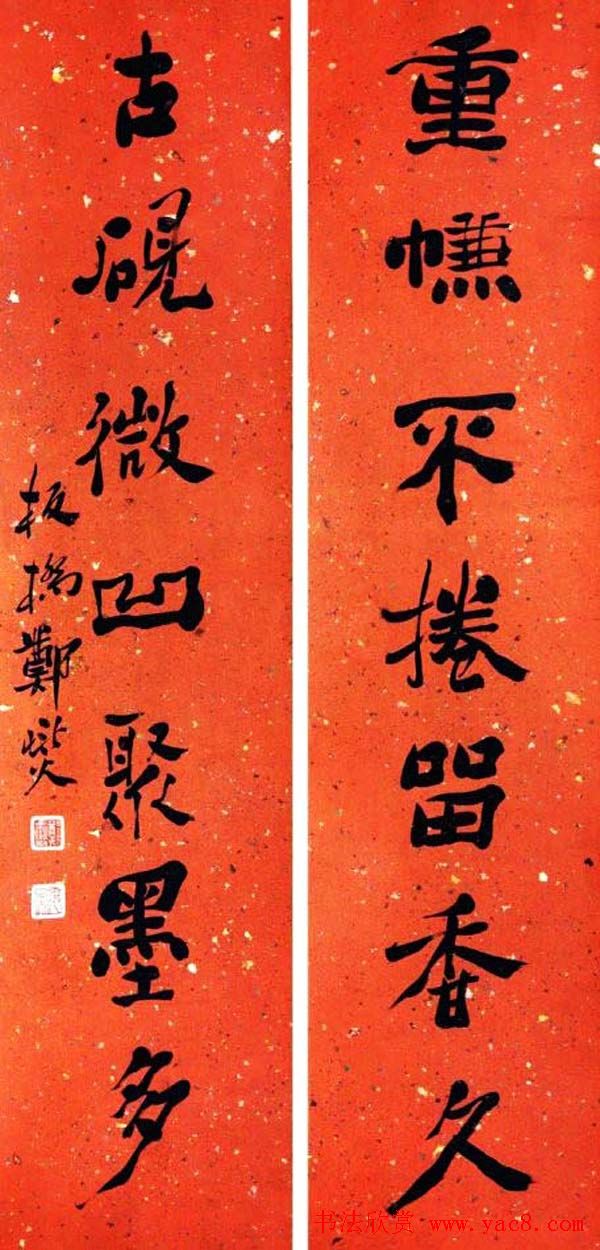 重㡘不捲留香久
古硯微凹聚墨多
板橋鄭燮
书法欣赏 www.yac8.com